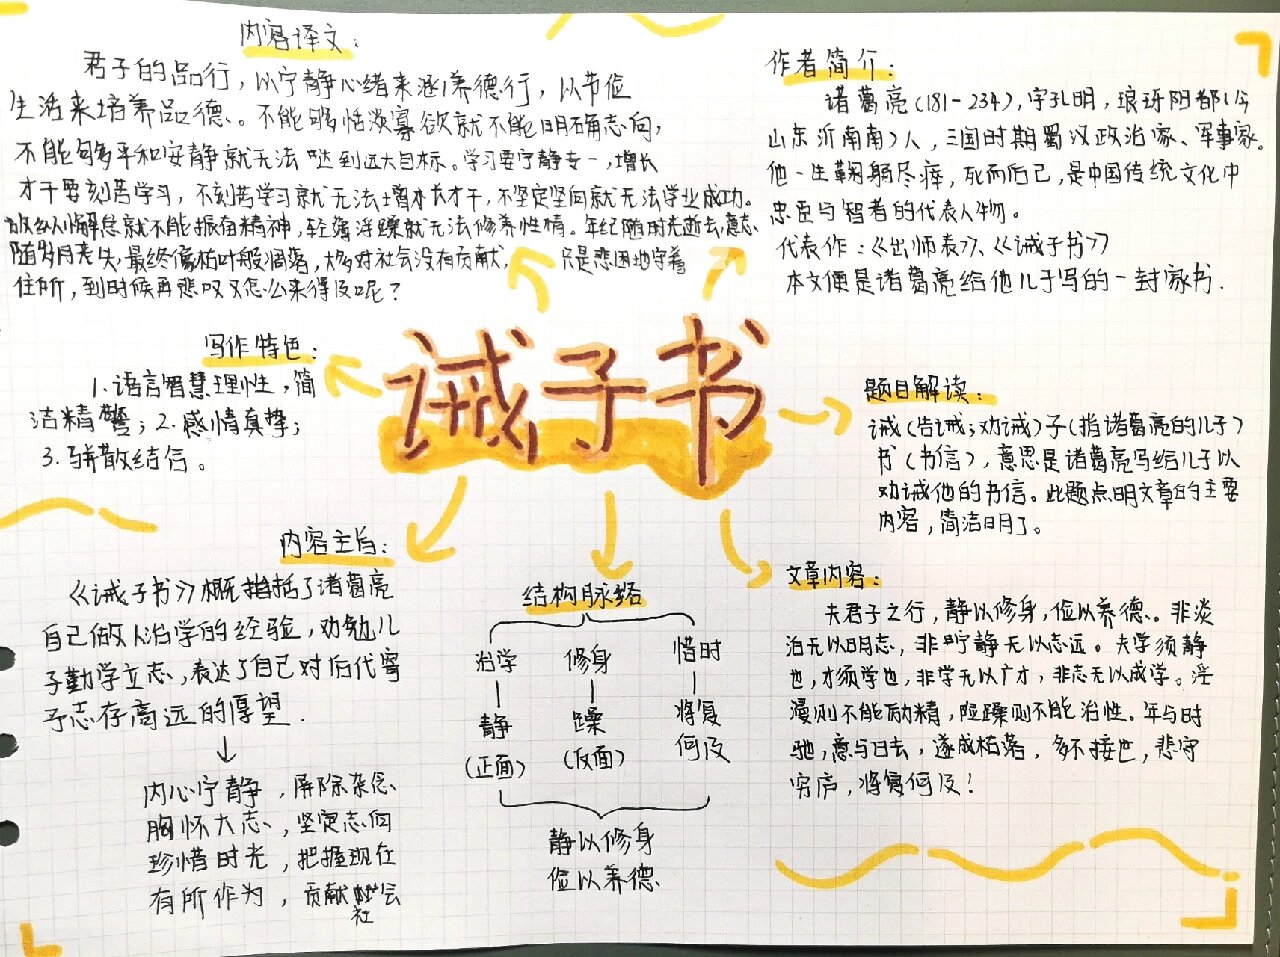 内容译文：
君子的品行，以宁静心绪来涵养德行，以节俭
生活来培养品德。不能够恬淡寡欲就不能明确志向，
不能够平和安静就无法达到远大目标。学习要宁静专一，增长
才干要刻苦学习，不刻苦学习就无法增长才干，不坚定坚向就无法学业成功。
放纵懈怠就不能振奋精神，轻薄浮躁就无法修养性情。年纪随时光逝去，意志
随岁月丧失，最终像枯叶般凋落，大多对社会没有贡献，只是悲困地守着
住所，到时候再悲叹又怎么来得及呢？
作者简介：
诸葛亮(181-234)，字孔明，琅琊阳都(今
山东沂南南)人，三国时期蜀汉政治家、军事家。
他一生鞠躬尽瘁，死而后已，是中国传统文化中
忠臣与智者的代表人物。
代表作：《出师表》、《诫子书》
本文便是诸葛亮给他儿子写的一封家书.
诫子书
写作特色：
1.语言智慧理性，简
洁精警；2.感情真挚；
3.骈散结合。
题目解读：
诫(告诫；劝诫)子(指诸葛亮的儿子)
书(书信)，意思是诸葛亮写给儿子以
劝诫他的书信。此题点明文章的主要
内容，简洁明了。
内容主旨：
《诫子书》概括了诸葛亮
自己做人治学的经验，劝勉儿
子勤学立志，表达了自己对后代寄
予志存高远的厚望.
内心宁静，屏除杂念
胸怀大志，坚定志向
珍惜时光，把握现在
有所作为，贡献社会
结构脉络
治学 修身 惜时
静 躁 将复
(正面) (反面) 何及
静以修身
俭以养德
文章内容：
夫君子之行，静以修身，俭以养德。非淡
泊无以明志，非宁静无以志远。夫学须静
也，才须学也，非学无以广才，非志无以成学。淫
漫则不能励精，险躁则不能治性.年与时
驰，意与日去，遂成枯落，多不接世，悲守
穷庐，将复何及！